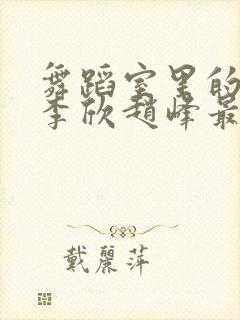 舞蹈室里的
李欣趙峰最
戴麗萍